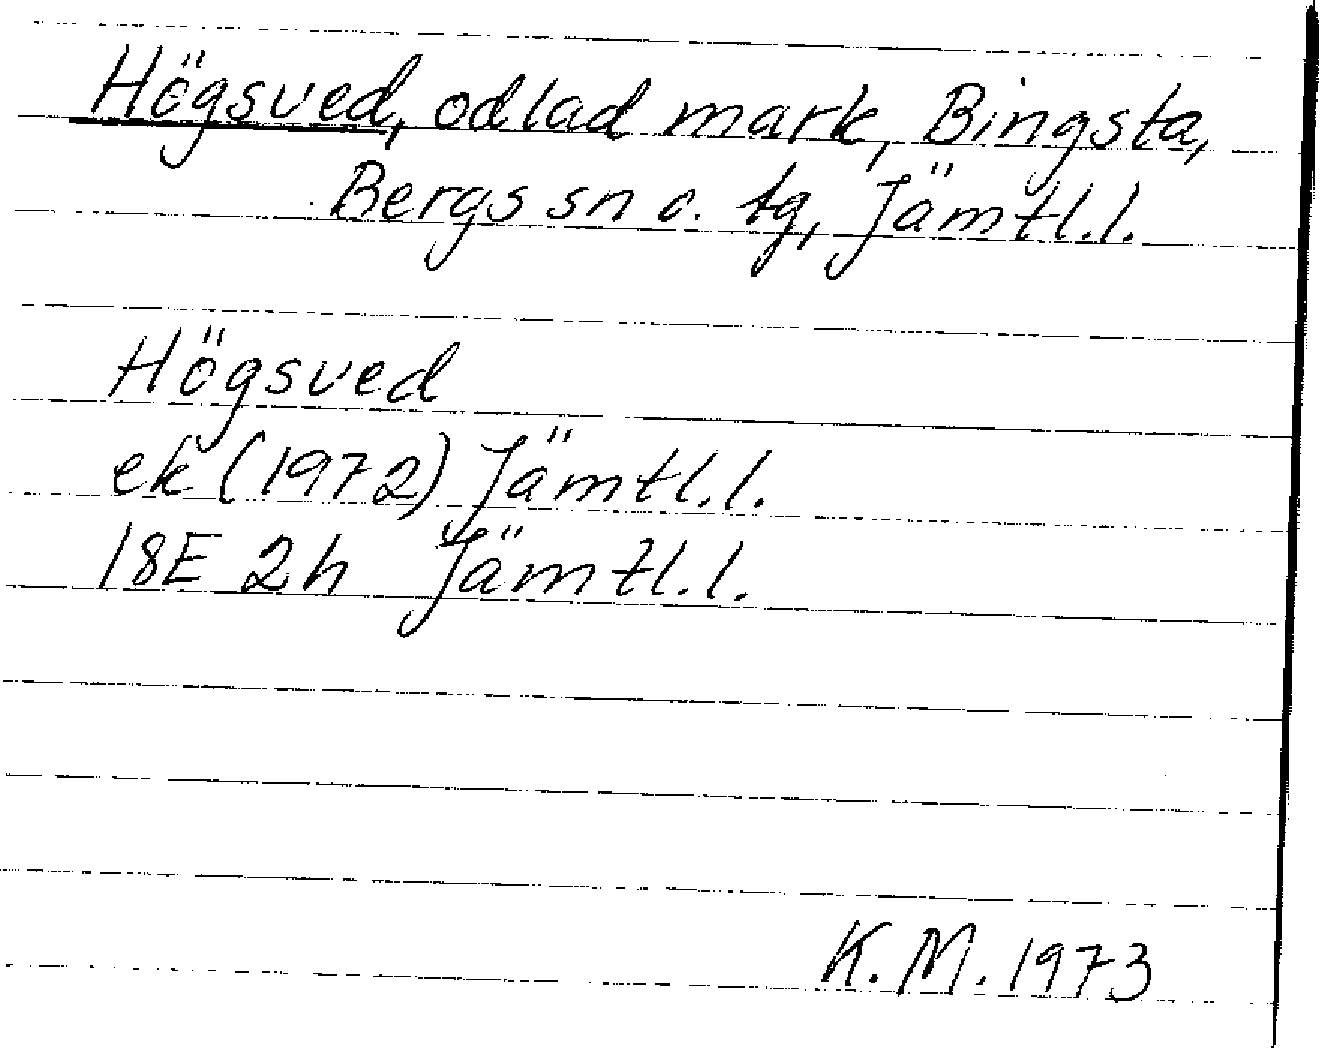 Högsved, odlad mark, Bingsta,
Bergs sn o. tg, Jämtl.l.
Högsved
ek (1972) Jämtl.l.
18E 2h Jämtl.l.
K.M. 1973